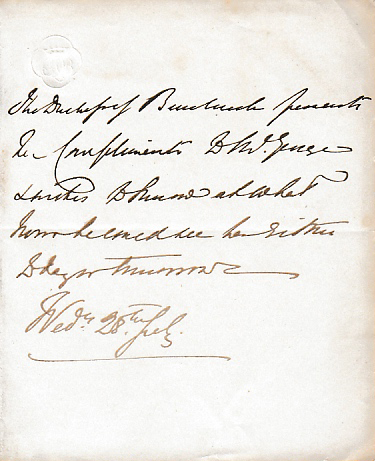 The Duchess of Buccleuch presents
her Compliments to Mr George
& wishes to know at what
hour he could see her either
to day or tomorrow
Wedy 28th July.